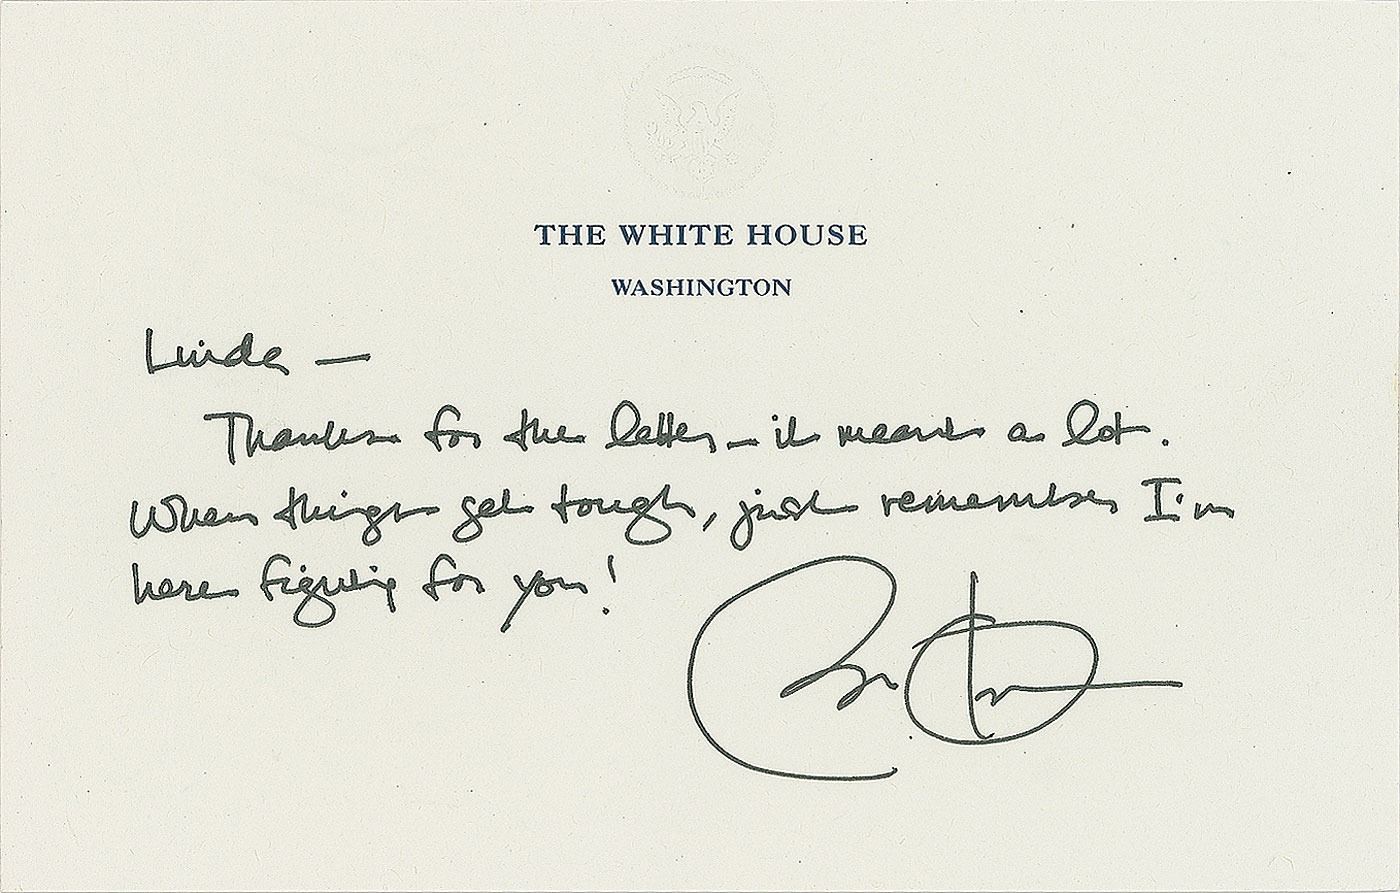 THE WHITE HOUSE
WASHINGTON
Linda —
Thanks for the letter — it means a lot.
When things get tough, just remember I'm
here fighting for you!